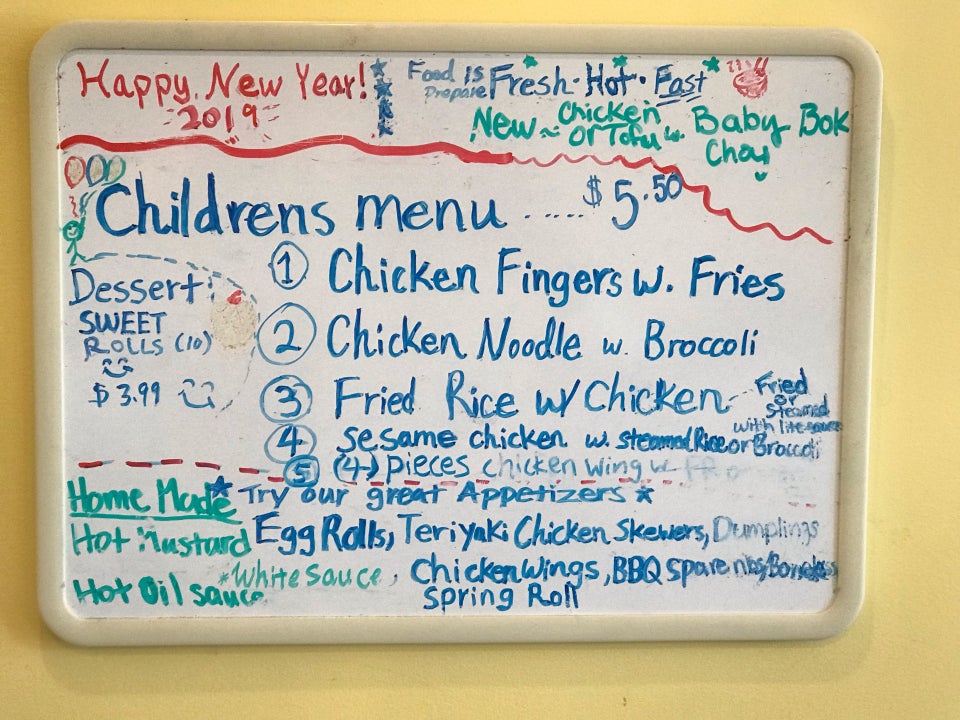 Happy New Year!
2019
Food is
Prepare
Fresh · Hot · Fast
New ~ Chicken
or Tofu w. Baby Bok
Choy
Childrens menu ...... $5.50
① Chicken Fingers w. Fries
② Chicken Noodle w. Broccoli
③ Fried Rice w/ Chicken
Fried
or
Steamed
with lite sauce
④ Sesame chicken w. steamed Rice or Broccoli
⑤ (4) pieces chicken wing w.
Dessert:
SWEET
ROLLS (10)
$3.99
Home Made
Hot Mustard
Hot Oil sauce
*White sauce
★ Try our great Appetizers ★
Egg Rolls, Teriyaki Chicken Skewers, Dumplings
, Chicken Wings, BBQ Spare ribs, Boneless
Spring Roll